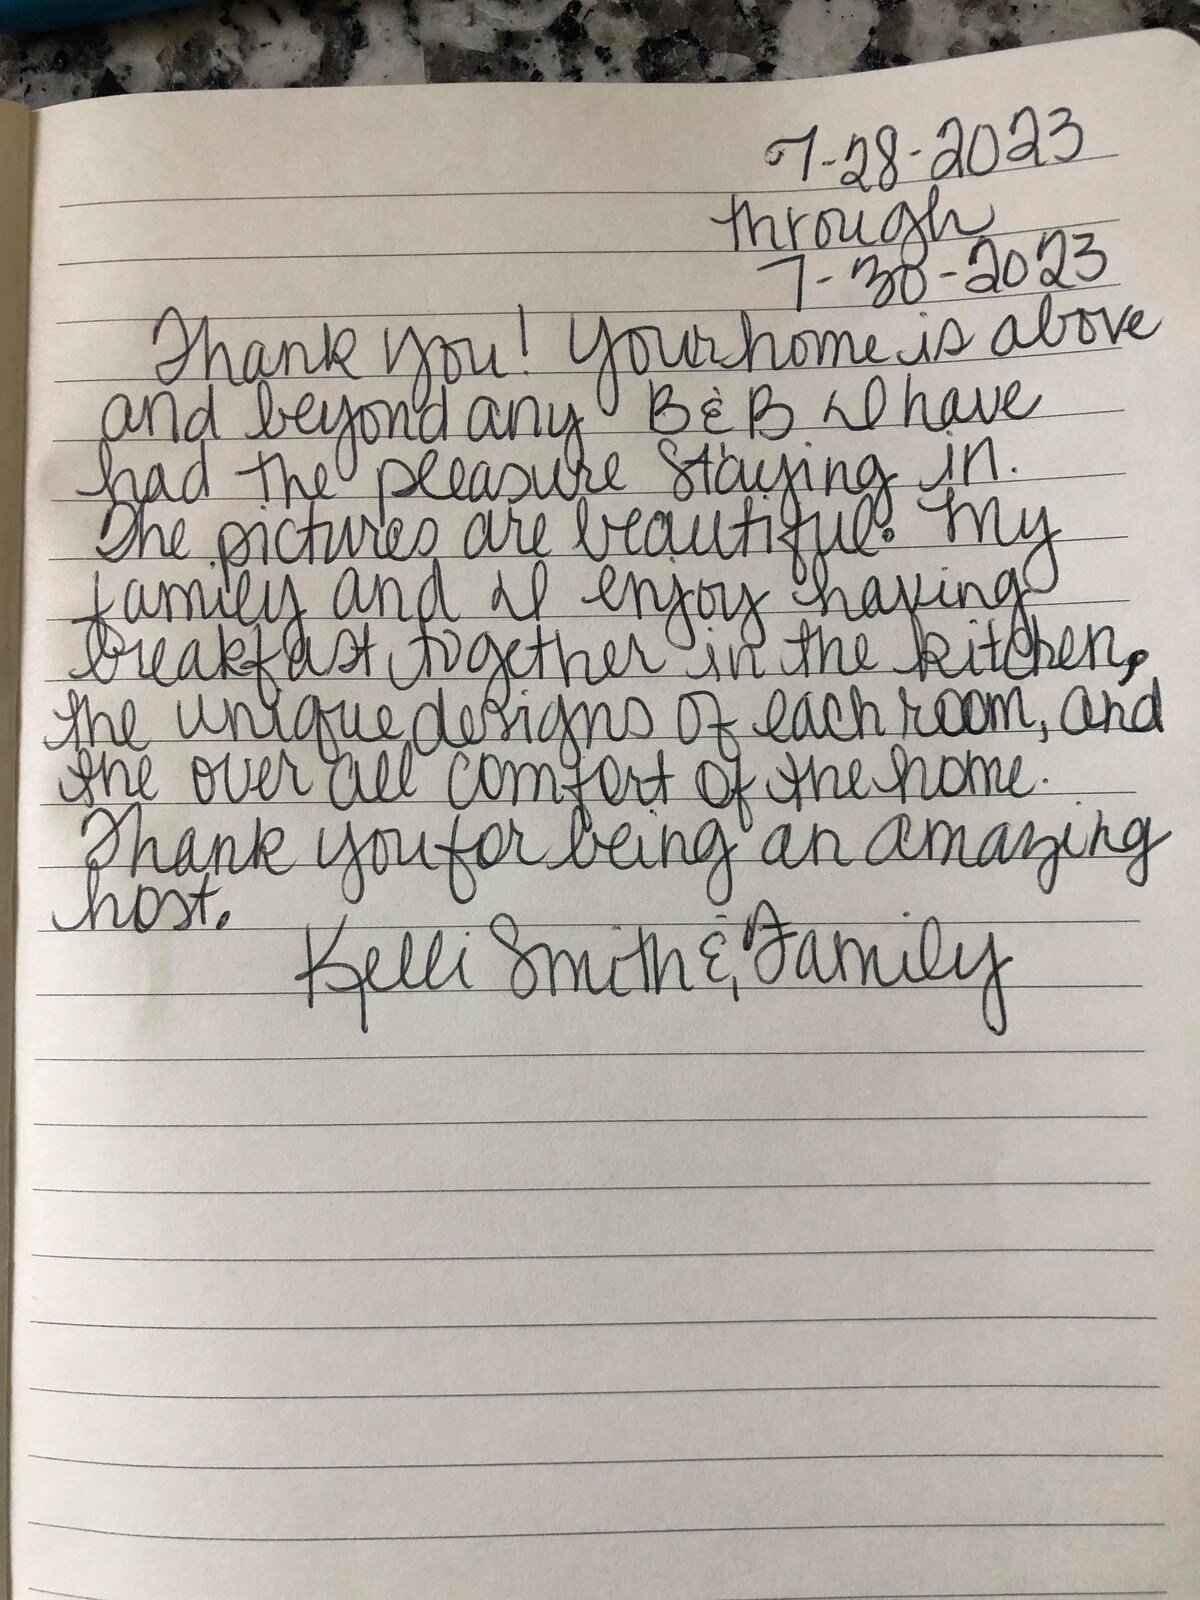 7-28-2023
through
7-30-2023
Thank you! Your home is above
and beyond any B & B I have
had the pleasure staying in.
The pictures are beautiful. My
family and I enjoy having
breakfast together in the kitchen,
the unique designs of each room, and
the over all comfort of the home.
Thank you for being an amazing
host.
Kelli Smith & Family